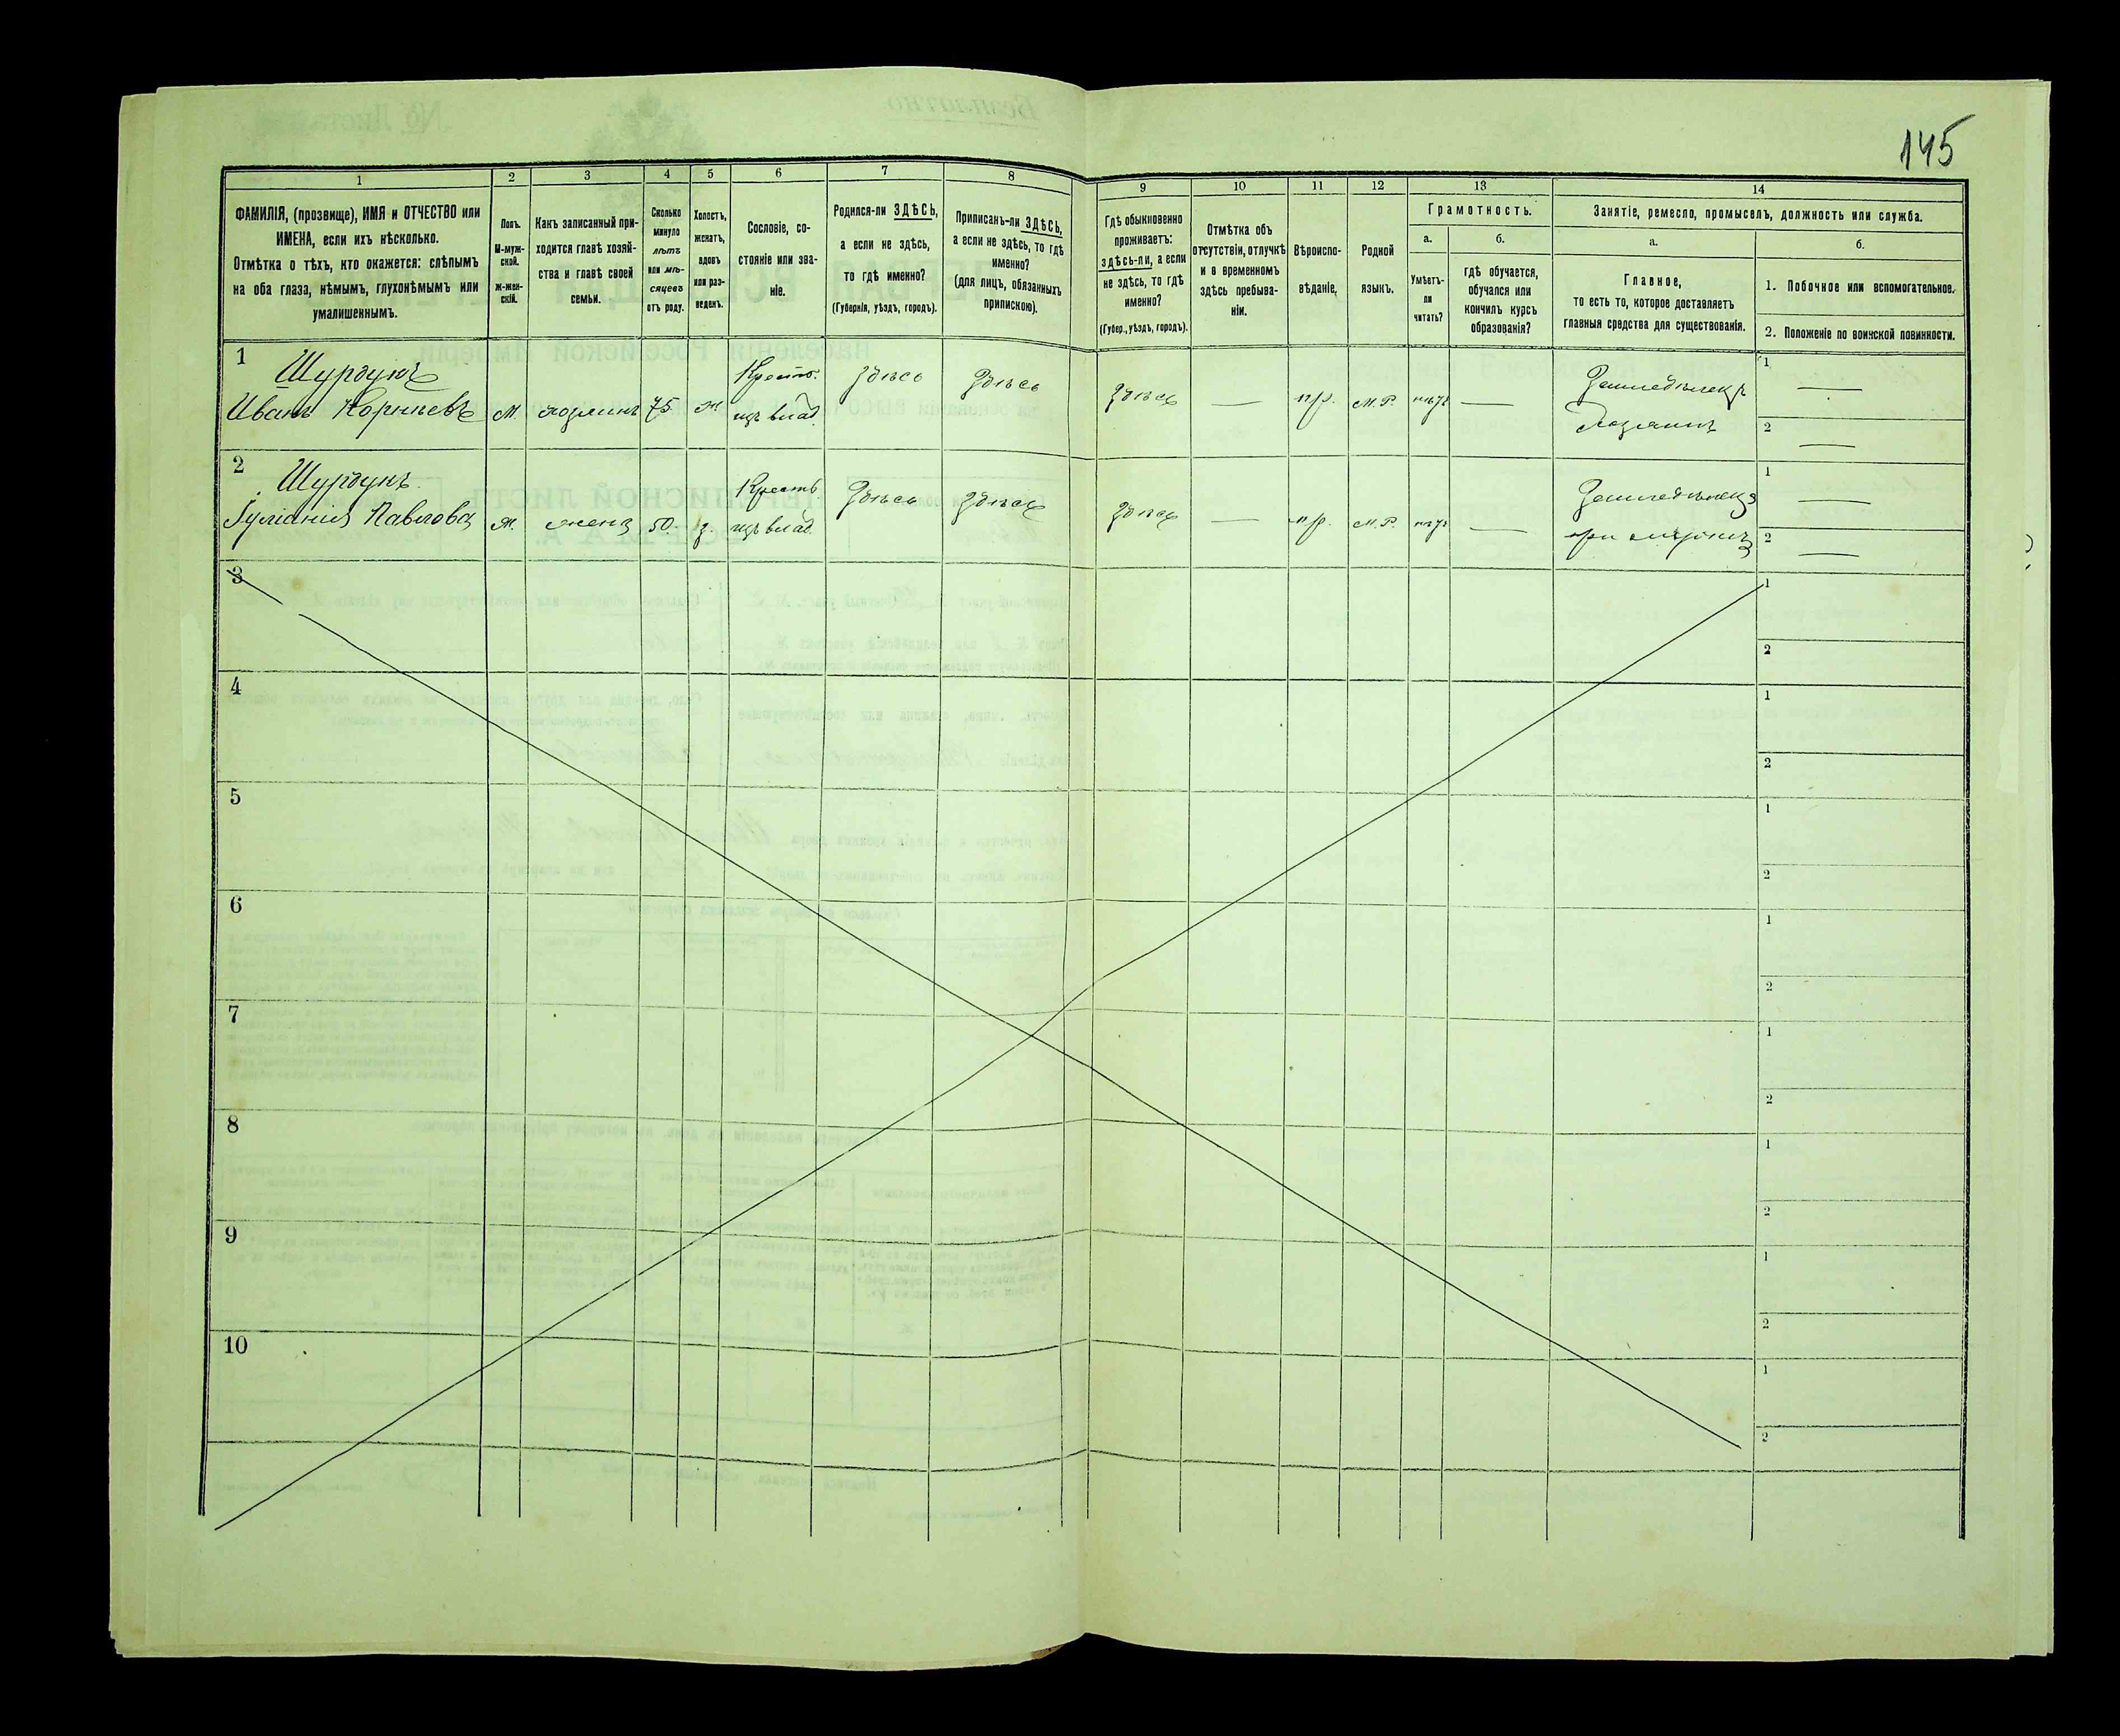 145
1
2
3
4
5
6
7
8
9
10
11
12
13
14
ФАМИЛІЯ, (прозвище), ИМЯ и ОТЧЕСТВО или
ИМЕНА, если ихъ нѣсколько.
Отмѣтка о тѣхъ, кто окажется: слѣпымъ
на оба глаза, нѣмымъ, глухонѣмымъ или
умалишеннымъ.
Полъ.
М-муж-
ской.
Ж-жен-
скій.
Какъ записанный при-
ходится главѣ хозяй-
ства и главѣ своей
семьи.
Сколько
минуло
лѣтъ
или мѣ-
сяцевъ
отъ роду.
Холостъ,
женатъ,
вдовъ
или раз-
веденъ.
Сословіе, со-
стояніе или зва-
ніе.
Родился-ли ЗДѢСЬ,
а если не здѣсь,
то гдѣ именно?
(Губернія, уѣздъ, городъ).
Приписанъ-ли ЗДѢСЬ,
а если не здѣсь, то гдѣ
именно?
(для лицъ, обязанныхъ
припискою).
Гдѣ обыкновенно
проживаетъ:
здѣсь-ли, а если
не здѣсь, то гдѣ
именно?
(Губер., уѣздъ, городъ).
Отмѣтка объ
отсутствіи, отлучкѣ
и о временномъ
здѣсь пребыва-
ніи.
Вѣроиспо-
вѣданіе,
Родной
языкъ.
Грамотность.
а.
Умѣетъ-
ли
читать?
б.
гдѣ обучается,
обучался или
кончилъ курсъ
образованія?
Занятіе, ремесло, промыселъ, должность или служба.
а.
Главное,
то есть то, которое доставляетъ
главныя средства для существованія.
б.
1. Побочное или вспомогательное.
2. Положеніе по воинской повинности.
1
Шурдукъ
Иванъ Корнѣевъ
М.
хозяинъ
75
ж
Крест.
изъ влад.
Здѣсь
Здѣсь
Здѣсь
—
пр.
М.Р.
нѣтъ
—
Земледѣлецъ
Хозяинъ
1 —
2 —
2
Шурдукъ
Іуліанія Павлова
Ж.
жена
50.
з.
Крест
изъ влад.
Здѣсь
Здѣсь
Здѣсь
—
пр.
М.Р.
нѣтъ
—
при мужѣ
1 —
2 —
3
1
2
4
1
2
5
1
2
6
1
2
7
1
2
8
1
2
9
1
2
10
1
2